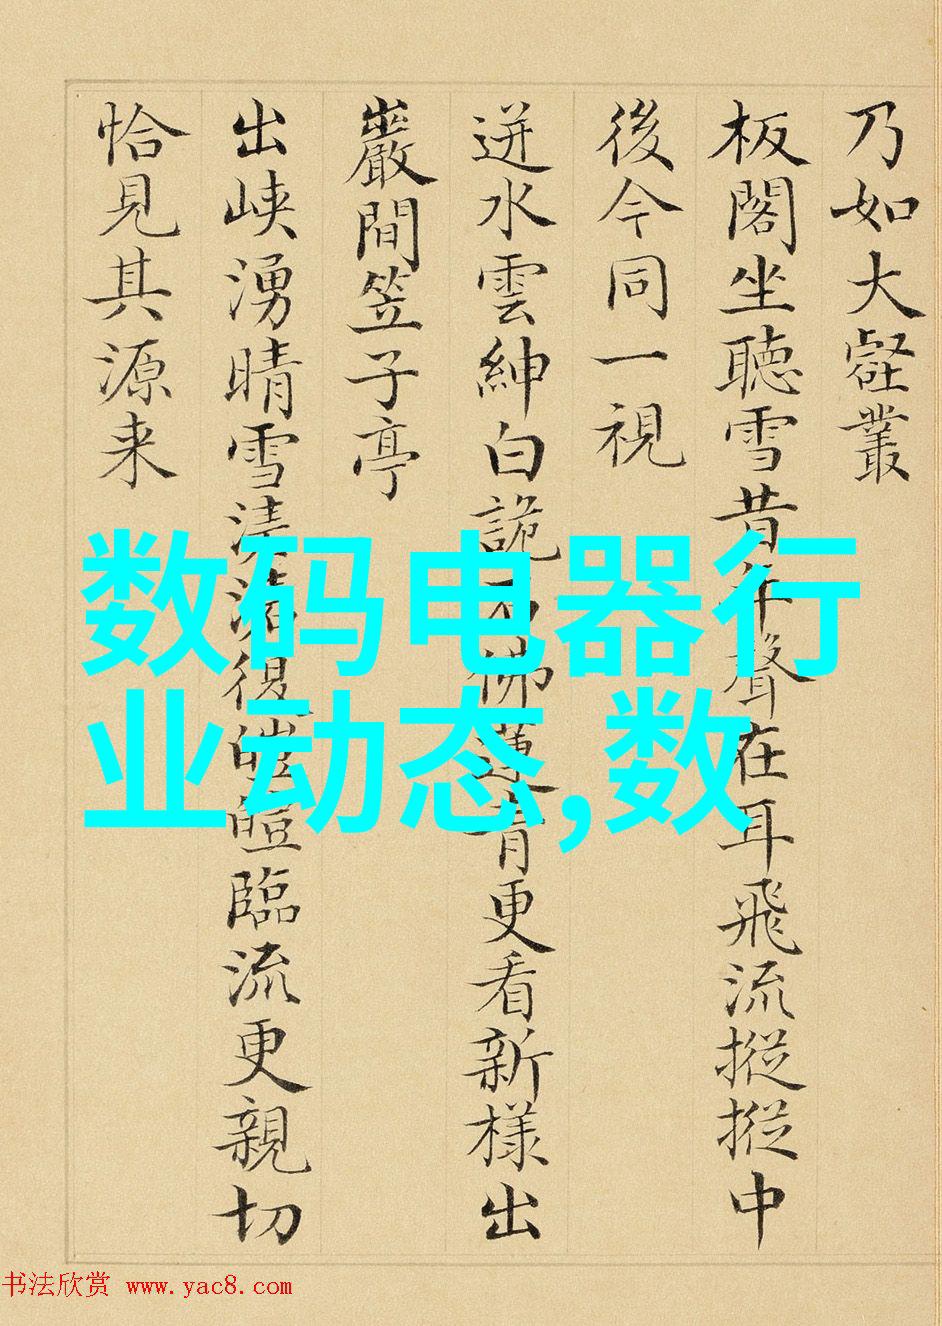 乃如大壑叢
板閣坐聽雪昔年聲在耳飛流摐摐中
後今同一視
迸水雲紳白詭佛蓮青更看新樣出
巖間笠子亭
出峡湧晴雪復皚皚臨流更親切
恰見其源来
数码电器行
业动态,数
书法欣赏 www.yac8.com